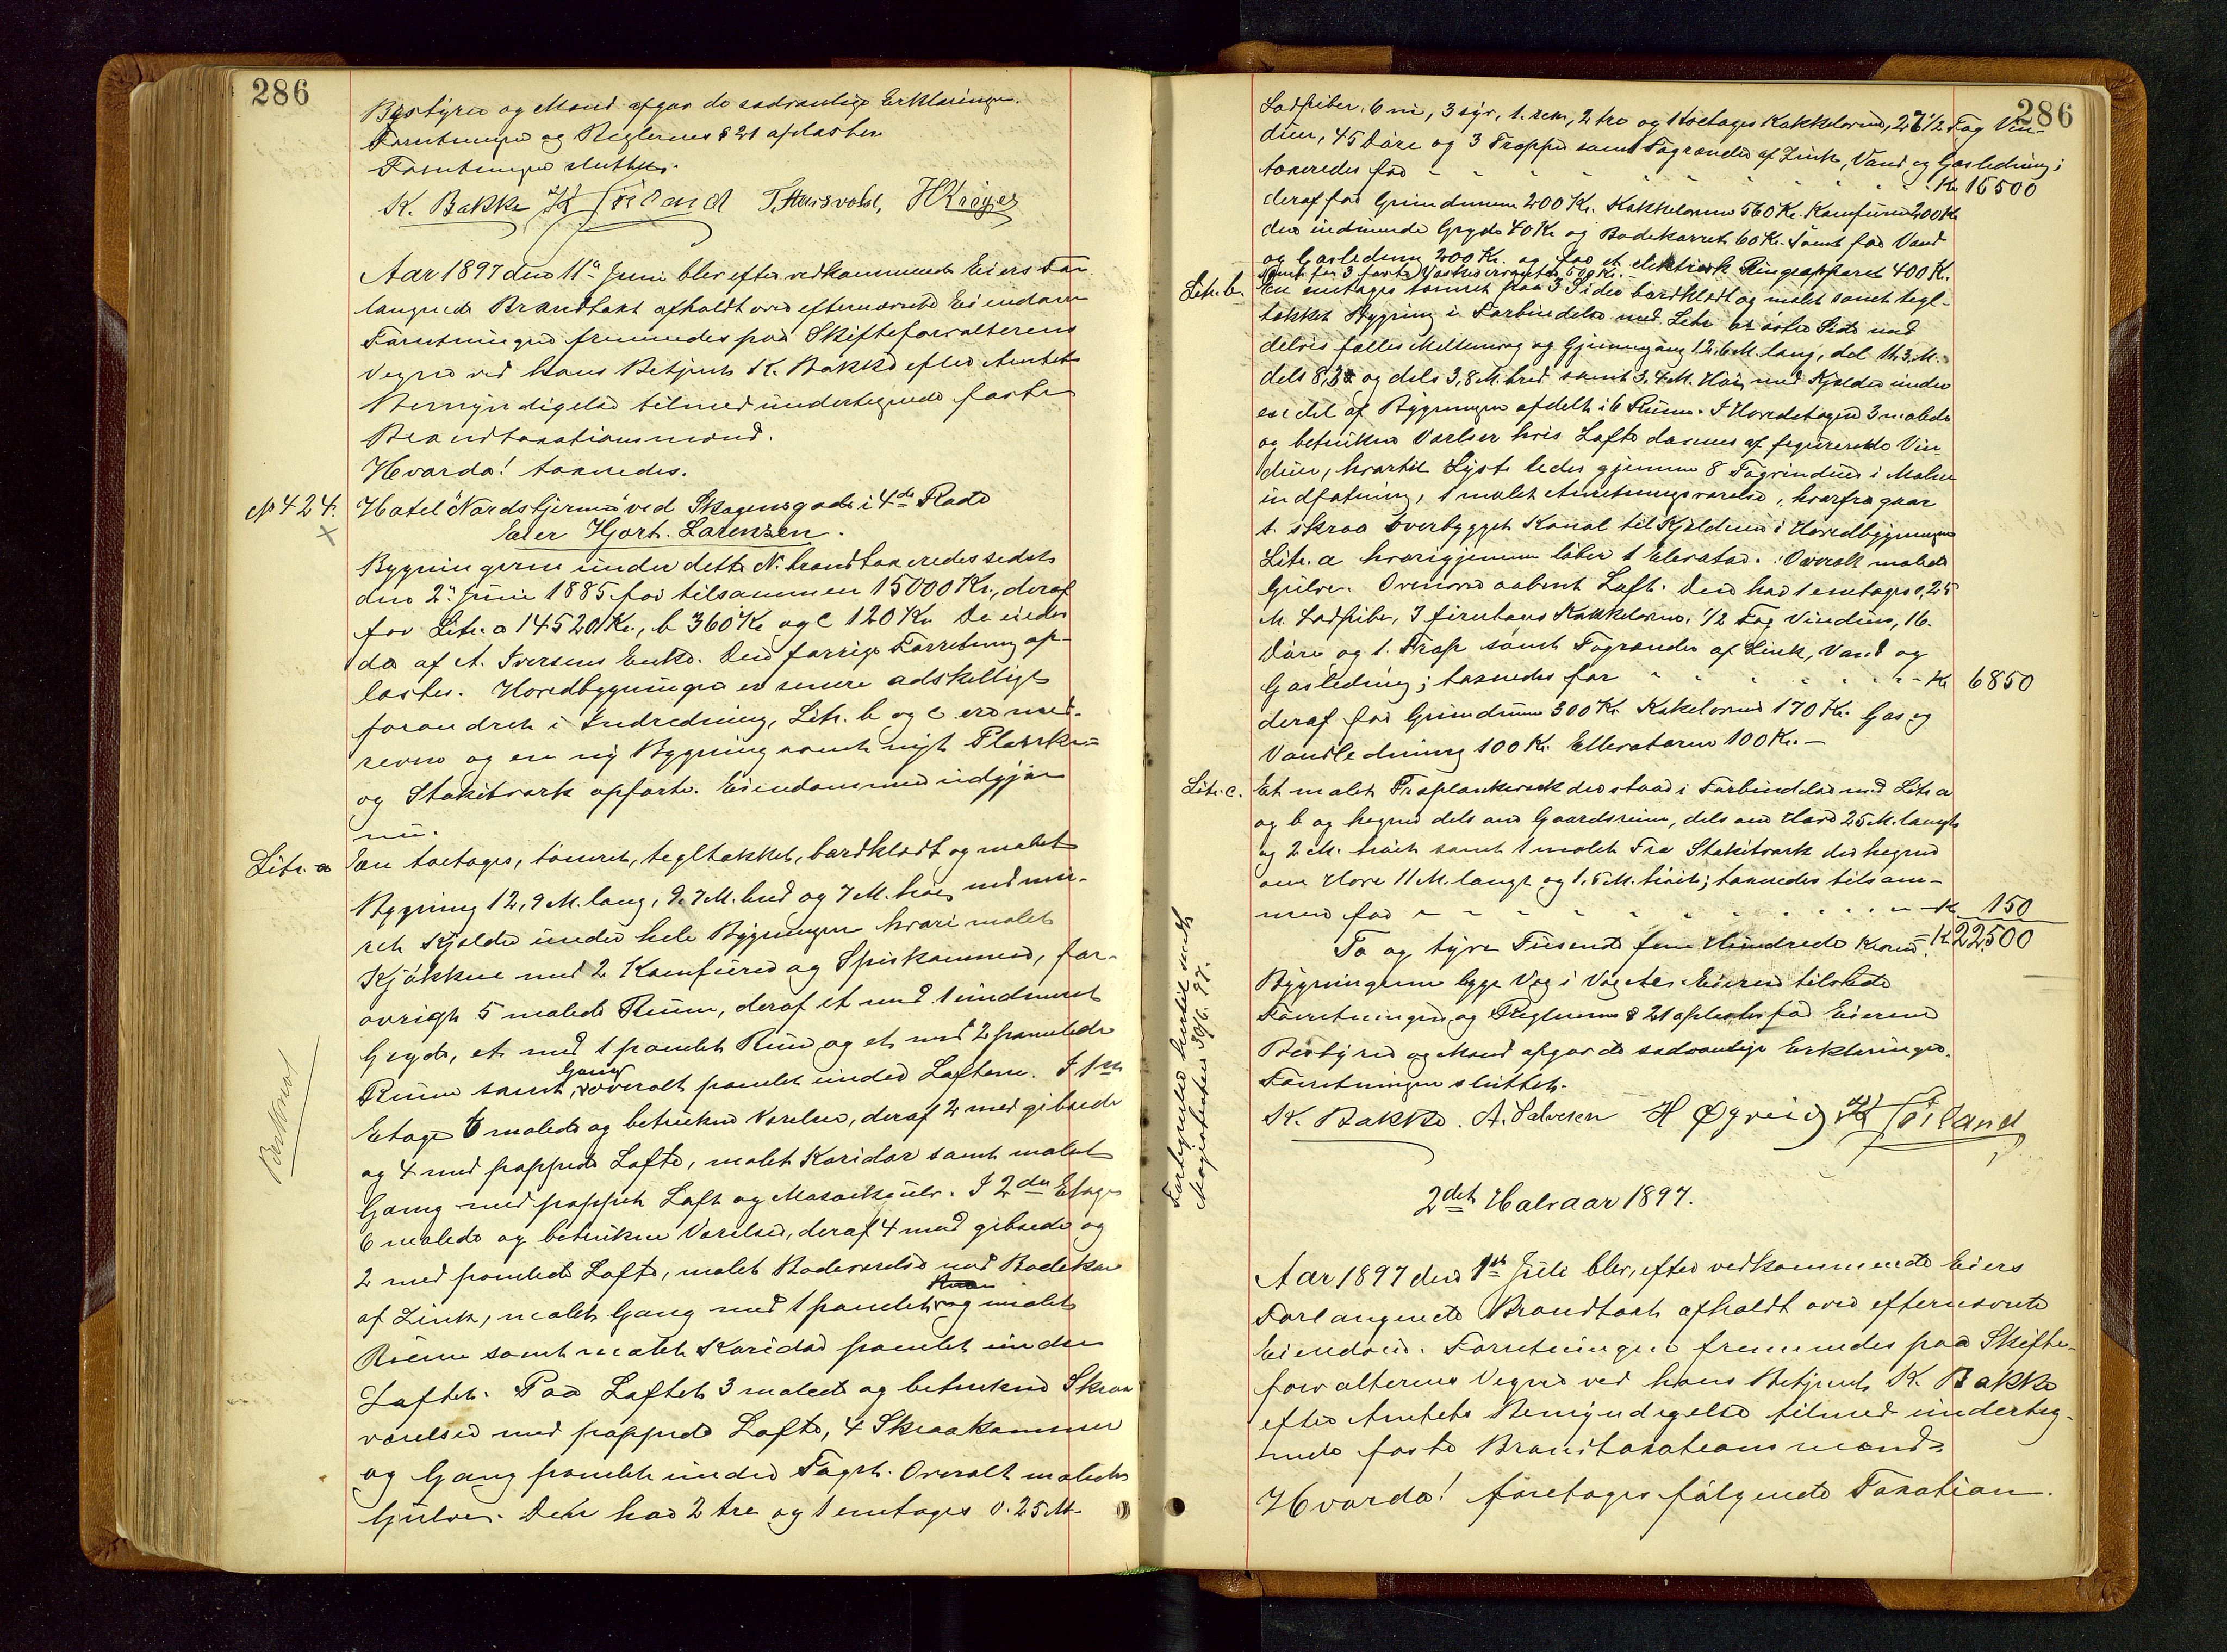 286
Bestyrer og Mand afgav de sædvanlige Erklæringer.
Forretningen og Reglernes § 21 oplæstes
Forretningen sluttet.
K. Bakke H Tøiland T. Hausvold, H Krøger
Aar 1897 den 11te Juni blev efter vedkommende Eiers For-
langende Brandtaxt afholdt over efternævnte Eiendom
Forretningen fremmedes paa Skifteforvalterens
Vegne ved hans Betjent K. Bakke efter Amtets
Bemyndigelse tilmed undertegnede faste
Brandtaxationsmænd.
Hvorda! taxeredes.
No 424. Hotel "Nordstjernen" ved Skagensgade i 4de Rode
Eier Hjorth. Lorenzen.
Bygningerne under dette No. brandtaxeredes sidst
den 2den Juni 1885 for tilsammen 15000 Kr., deraf
for Litr. a 14520 Kr., b 360 Kr og c 120 Kr. De eiedes
da af A. Iversens Enke. Den forrige Forretning op-
læstes. Hovedbygningen er senere adskilligt
forandret i Indredning, Litr. b og c ere ned-
revne og en ny Bygning samt nyt Plankev-
og Stakitværk opført. Eiendommen udgjør
nu.
Litr. a En toetages, tømret, tegltækket, bordklædt og malet
Bygning 12,9 M. lang, 9,7 M. bred og 7 M. høi, med mu-
ret Kjelder under hele Bygningen hvori malet
Kjøkken med 2 Komfurer og Spiskammer, for-
øvrigt 5 malede Rum, deraf et med 1 indmuret
Gryde, et med 1 panelet Rum og et med 2 panelede
Rum samt Gang overalt panelet under Loftene. I 1ste
Etage 6 malede og betrukne Værelser, deraf 2 med gibsede
og 4 med pappede Lofte, malet Koridor samt malet
Gang med pappet Loft og Mosaikgulv. I 2den Etage
6 malede og betrukne Værelser, deraf 4 med gibsede og
2 med panelede Lofte, malet Badeværelse med Badekar
af Zink, malet Gang med 1 panelet og malet
Rum samt malet Koridor panelet under
Loftet. Paa Loftet 3 malede og betrukne Skraa-
værelser med pappede Lofte, 4 Skraakammer
og Gang panelet under Taget. Overalt malede
Gulve. Den har 2 tre og 1 enetages 0.25 M.
286
Ladpiber, 6 ni, 3 syv, 1. sex, 2 tre og 1 toetages Kakkelovne, 27 1/2 Fag Vin-
duer, 45 Døre og 3 Trapper samt Tagrender af Zink, Vand og Gasledning;
taxeredes for " " " Kr 15500
deraf for Grundmuren 200 Kr. Kakkelovne 560 Kr. Komfurer 200 Kr
den indmurede Gryde 40 Kr og Badekarret 60 Kr. Samt for Vand
og Gasledning 200 Kr. og for et elektrisk Ringeapparat 400 Kr.
samt for 3 faste 500 Kr.
Litr. b. En enetages tømret paa 3 Sider bordklædt og malet samt tegl-
tækket Bygning i Forbindelse med Litr a's østre Side med
delvis fælles Mellemvæg og Gjennemgang 12,6 M. lang, del 11,3 M.
dels 8,3 og dels 3,8 M. bred samt 3,4 M. Høi, med Kjelder under
en del af Bygningen afdelt i 6 Rum. I Hovedetagen 3 malede
og betrukne Værelser hvis Lofte dannes af figurerede Vin-
duer, hvortil Lyset ledes gjennem 8 Tagvinduer i
indfatning, 1 malet Anretningsværelse, hvorfra gaar
1. skraa overbygget Kanal til Kjelderen i Hovedbygningen
Litr. a hvorigjennem løber 1 Elevator. Overalt malede
Gulve. Ovenover aabent Loft. Den har 1 enetages 0,25
M. Ladpibe, 3 firetages Kakkelovne, 1/2 Fag Vinduer, 16.
Døre og 1. Trap samt Tagrender af Zink, Vand og
Gasledning; taxeredes for " " " Kr 6850
deraf for Grundmur 300 Kr. Kakelovne 170 Kr. Gas og
Vandledning 100 Kr. Ellevatoren 100 Kr. —
Litr. c. Et malet Træplankeværk der staar i Forbindelse med Litr a
og b og hegner dels om Gaardsrum, dels om Have 25 M. langt
og 2 M. høit samt 1 malet Træ Stakitværk der hegner
om Have 11 M. langt og 1,5 M. høit; taxeredes tilsam-
men for " " " Kr 150
To og tyve Tusende fem Hundrede Kroner = Kr 22500
Bygningerne ligge Væg i Væg. Eieren tilstede
Forretningen og Reglernes § 21 oplæstes for Eieren
Bestyrer og Mand afgav de sædvanlige Erklæringer.
Forretningen sluttet.
K. Bakke. A. Salvesen H Øgreid H Tøiland
2det Halvaar 1897.
Aar 1897 den 1ste Juli blev, efter vedkommende Eiers
Forlangende Brandtaxt afholdt over efternævnte
Eiendom. Forretningen fremmedes paa Skifte-
forvalterens Vegne ved hans Betjent K. Bakke
efter Amtets Bemyndigelse tilmed underteg-
nede faste Brandtaxationsmænd.
Hvorda! foretoges følgende Taxation.
Beskrevet
Magistraten 30/6. 97.